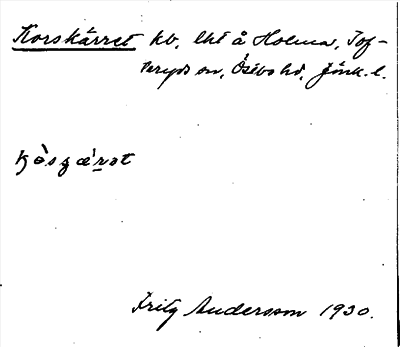 Korskärret kb, lht å Holma, Tof-
teryds sn, Östbo hd, Jönk. l.
Fritz Andersson 1930.